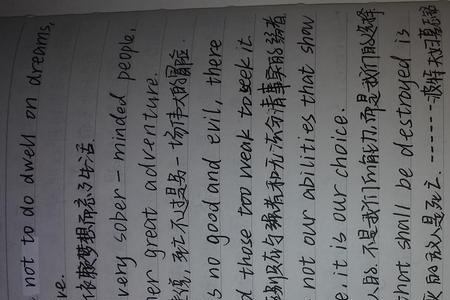 not to do dwell on dreams,
re.
梦想而忘了生活
very sober-minded people,
her great adventure.
死亡不过是另一场伟大的冒险
s no good and evil, there
d those too weak to seek it.
强者和无法分清事实的弱者
not our abilities that show
e. it is our choice.
不是我们的能力,而是我们的选择
shall be destroyed is
敌人是死亡. ------波特夫妇墓